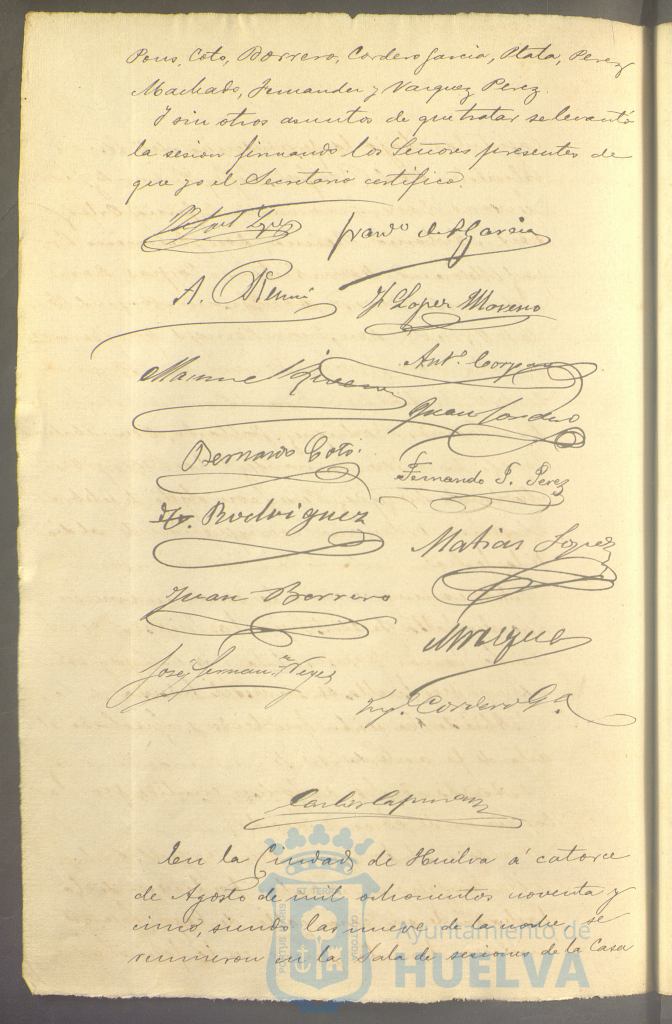 Pons, Coto, Borrero, Cordero Garcia, Plata, Perez
Machado, Fernandez y Vazquez Perez.
Y sin otros asuntos de que tratar se levantó
la sesion firmando los Señores presentes de
que yo el Secretario certifico.
de Garcia
A.
J Lopez Moreno
Antº.
Juan Cordero
Bernardo Coto.
Fernando T. Perez
Rodriguez
Matias Lopez
Juan Borrero
José
Cordero Ga.
En la Ciudad de Huelva á catorce
de Agosto de mil ochocientos noventa y
cinco, siendo las nueve de la noche se
reunieron en la Sala de sesiones de la Casa
Ayuntamiento de
HUELVA